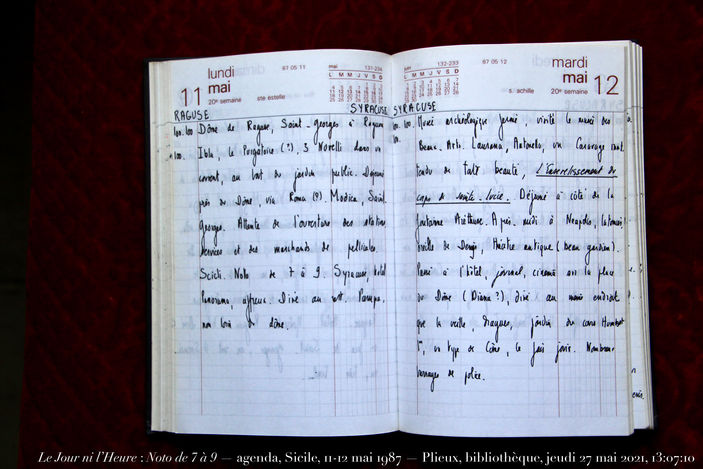 lundi
mai
11
20e semaine
ste estelle
87 05 11
mai
131-234
L M M J V S D
RAGUSE
SYRACUSE
Dôme de Raguse, Saint-Georges à Raguse
Ibla, le Purgatoire (?), 3 Novelli dans un
couvent, au bout du jardin public. Déjeuné
près du Dôme, via Roma (?). Modica, Saint
Georges. Attente de l'ouverture des stations
services et des marchands de pellicules.
Scicli. Noto de 7 à 9. Syracuse, hotel
Panorama, affreux. Dîné au rest. Pampa,
non loin du dôme.
mardi
mai
12
87 05 12
132-233
s. achille
L M M J V S D
SYRACUSE
Musée archéologique fermé, visité le musée des
Beaux-Arts. Laurana, Antonello, un Caravage inat-
tendu de toute beauté, L'Ensevelissement du
corps de sainte-Lucie. Déjeuné à côté de la
fontaine Aréthuse. Après-midi à Neapolis, latomies,
oreille de Denys, théâtre antique (beau gardien).
Passé à l'hôtel, journal, cinéma sur la place
du Dôme (Diana?), dîné au même endroit
que la veille, dragues, jardin du cours Humbert
Ier, un type de Côme, le fais jouir. Nombreux
barrages de police.
Le Jour ni l'Heure : Noto de 7 à 9 — agenda, Sicile, 11-12 mai 1987 — Plieux, bibliothèque, jeudi 27 mai 2021, 13:07:10